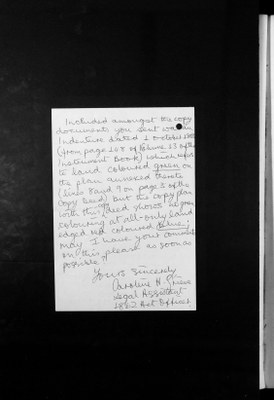 Included amongst the copy
documents you sent was an
Indenture dated 2 October
(from page 288 of Volume 23 of the
Instrument Book) which refers
to land coloured green on
the plan annexed thereto
(lines 8 and 9 on page 3 of the
copy deed) but the copy plan
with this deed shows no green
colouring at all - only land
edged red coloured blue;
may I have your comments
on this, please as soon as
possible.
Yours sincerely
Caroline H.
Legal Assistant
1882 Act Offices